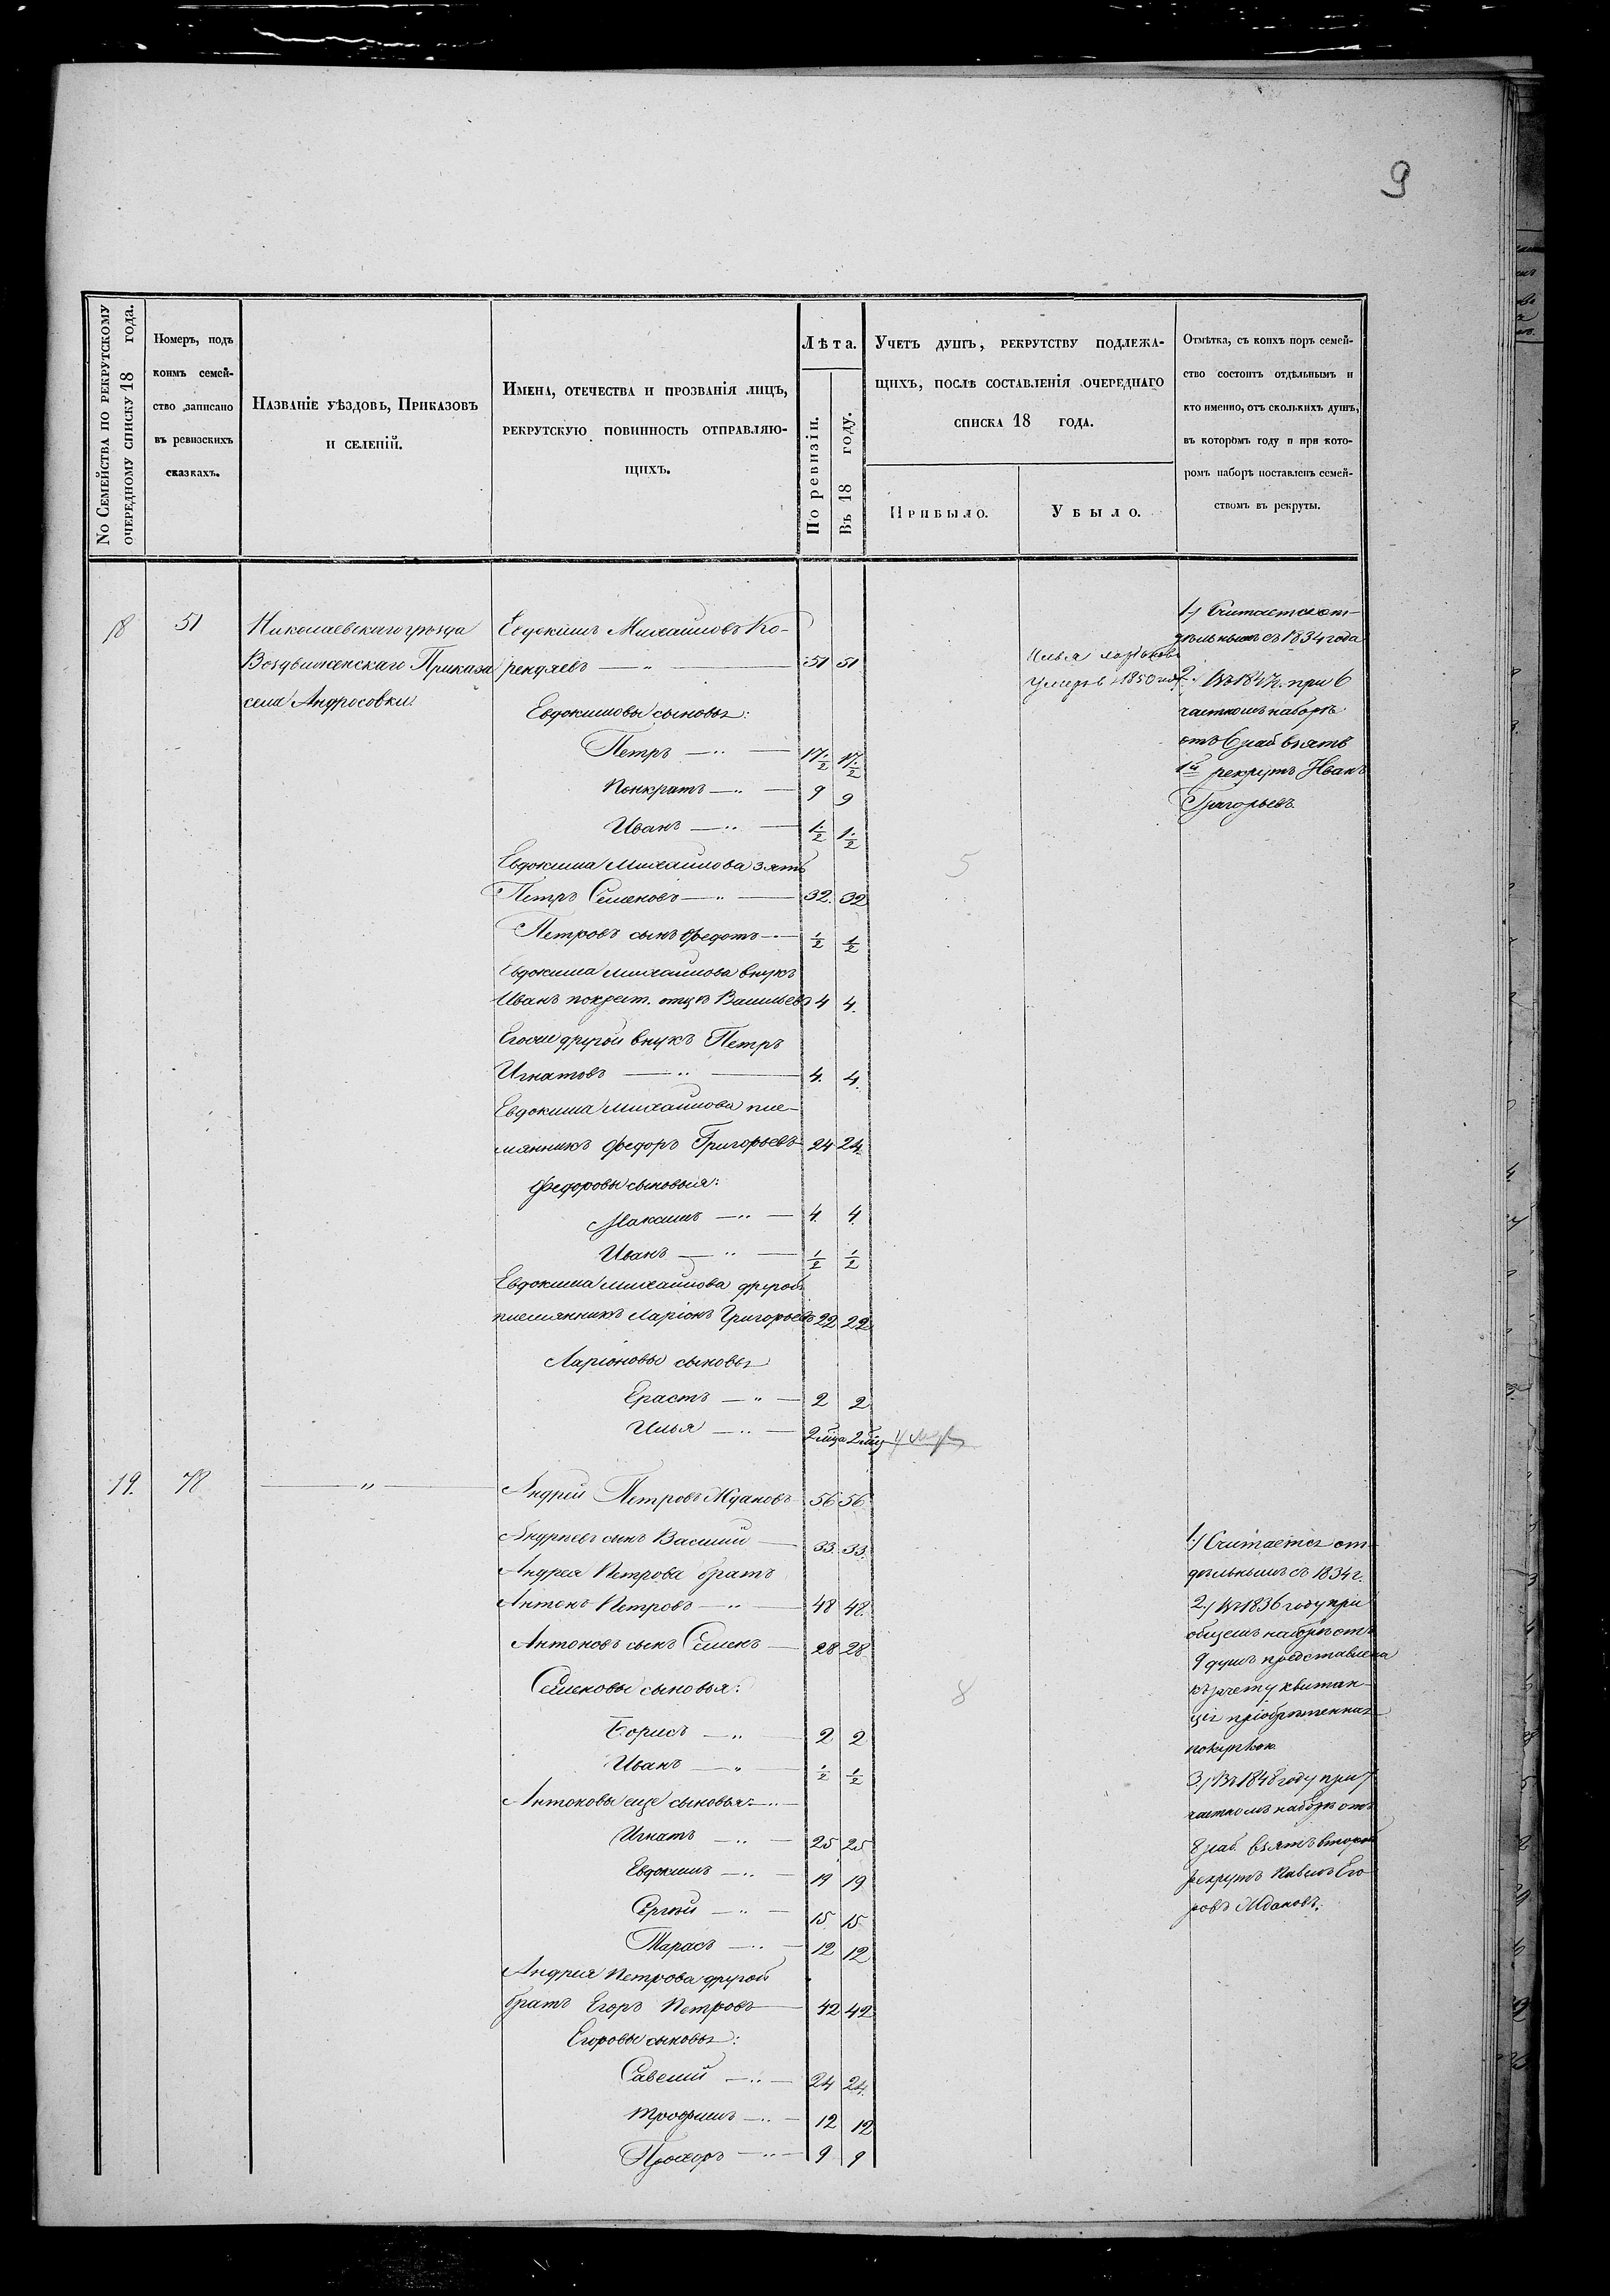 9
No Семейства по рекрутскому
очередному списку 18 года.
Номеръ, подъ
коимъ семей-
ство записано
въ ревизскихъ
сказкахъ.
Названіе уѣздовъ, Приказовъ
и селеній.
Имена, отечества и прозванія лицъ,
рекрутскую повинность отправляю-
щихъ.
Лѣта.
По ревизіи.
Въ 18 году.
Учетъ душъ, рекрутству подлежа-
щихъ, послѣ составленія очереднаго
списка 18 года.
Прибыло.
Убыло.
Отмѣтка, съ коихъ поръ семей-
ство состоитъ отдѣльнымъ и
кто именно, отъ сколькихъ душъ,
въ которомъ году и при кото-
ромъ наборѣ поставленъ семей-
ствомъ въ рекруты.
18 51 Николаевскаго уѣзда
Воздвиженскаго Приказа
села Андросовки
Евдокимъ Михайловъ Ко-
рендяевъ — " — 51 51
Евдокимовы сыновья:
Петръ — " — 17½ 17½
Понкратъ — " — 9 9
Иванъ — " — 1½ 1½
Евдокима Михайлова зять
Петръ Семеновъ — " — 32. 32
Петровъ сынъ Федотъ — ½ ½
Евдокима Михайлова внукъ
Иванъ по крест. отцѣ Васильевъ 4 4.
Его же другой внукъ Петръ
Игнатовъ — " — 4. 4.
Евдокима Михайлова пле-
мянникъ Федоръ Григорьевъ 24 24.
Федоровы сыновья:
Максимъ — " — 4. 4.
Иванъ — " — ½ ½
Евдокима Михайлова другой
племянникъ Ларіонъ Григорьевъ 22 22
Ларіоновы сыновья
Ерастъ — " — 2 2
Илья — " — 2 мѣсяца 2 мѣс
5
Илья Ларіоновъ
умеръ въ 1850 году
1.) Считается от-
дѣльнымъ съ 1834 года
2.) Въ 1847 г. при 6
частномъ наборѣ
отъ 6 раб взятъ
1й рекрутъ Иванъ
Григорьевъ
19. 78 — " —
Андрей Петровъ Ждановъ 56 56
Андреевъ сынъ Василий — 33. 33.
Андрея Петрова братъ
Антонъ Петровъ — " — 48 48.
Антоновъ сынъ Семенъ — 28 28
Семеновы сыновья:
Борисъ — " — 2 2
Иванъ — " — ½ ½
Антоновы еще сыновья: — "
Игнатъ — " — 25 25
Евдокимъ — " — 19 19
Сергѣй — " — 15 15
Тарасъ — " — 12 12
Андрея Петрова другой
братъ Егоръ Петровъ — 42 42
Егоровы сыновья:
Савелий — " — 24 24.
Трофимъ — " — 12 12
Прохоръ — " — 9 9
8
1.) Считается от-
дѣльнымъ съ 1834 г.
2.) Въ 1836 году при
общемъ наборѣ отъ
9 душъ представлена
къ зачету квитан-
ція пріобрѣтенная
покупкою
3.) Въ 1848 году при 7
частномъ наборѣ отъ
8 раб. взятъ второй
рекрутъ Павелъ Его-
ровъ Ждановъ.